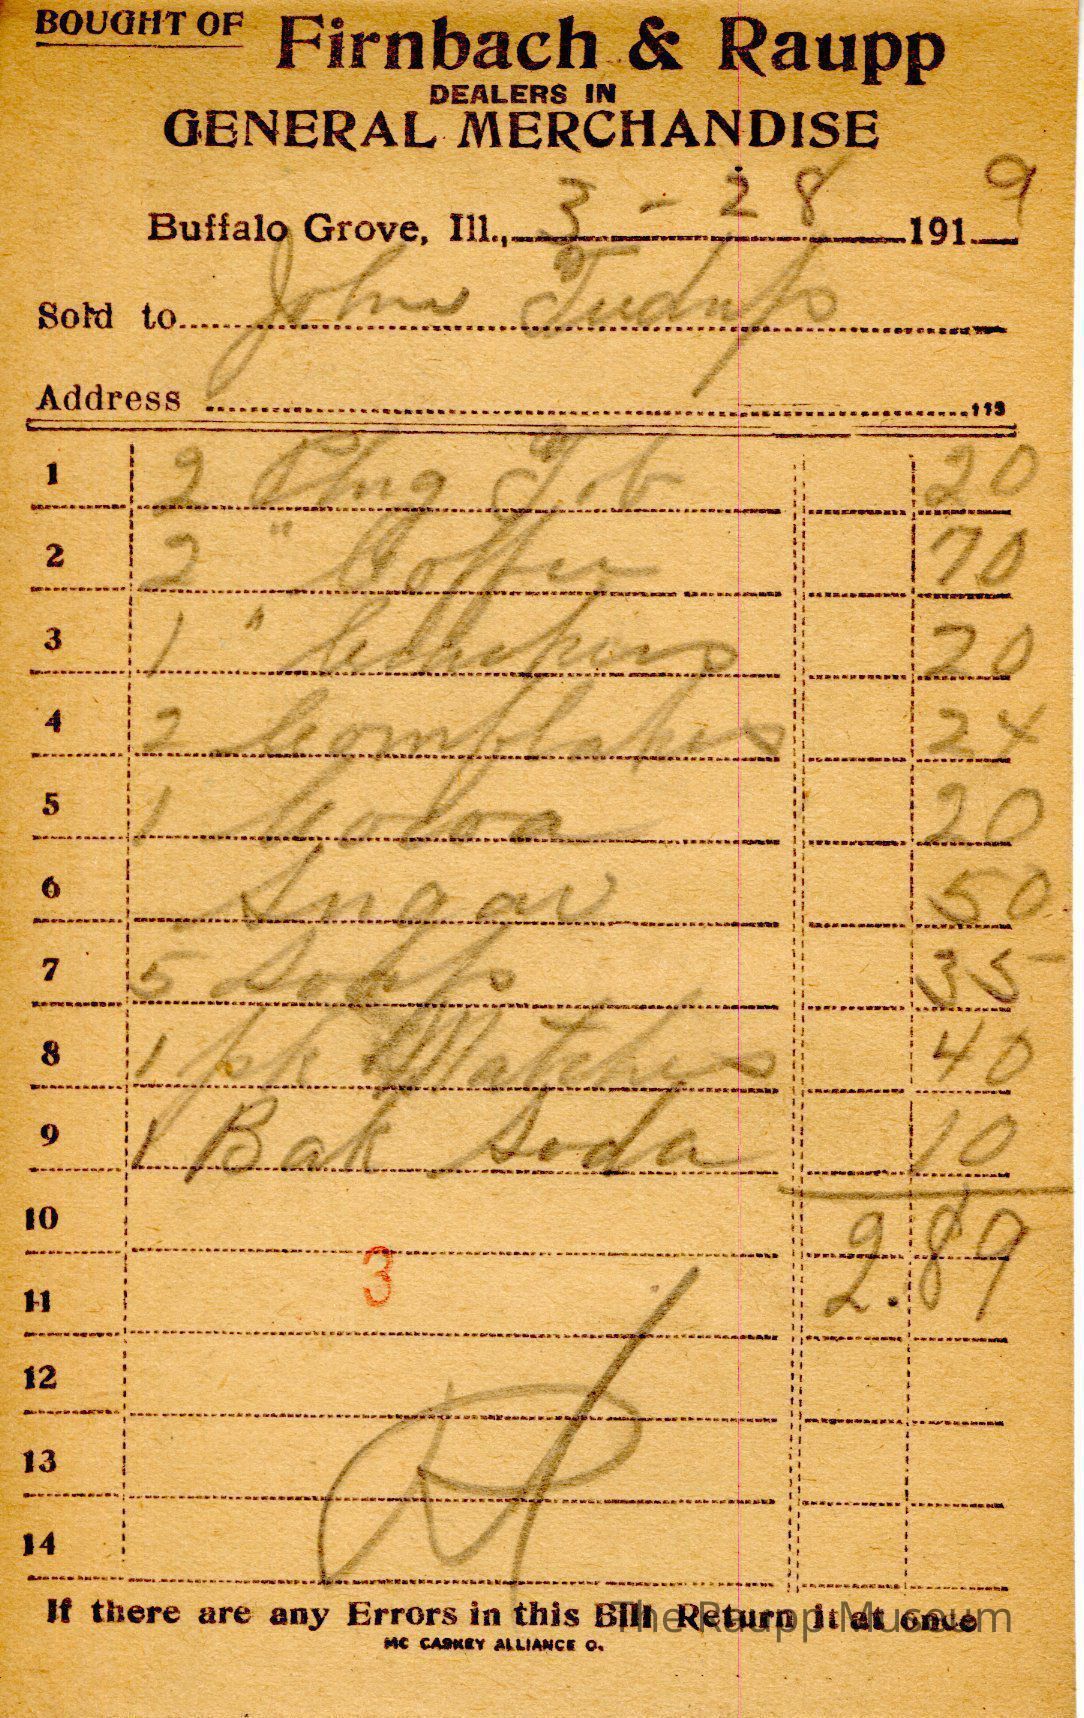 BOUGHT OF Firnbach & Raupp
DEALERS IN
GENERAL MERCHANDISE
Buffalo Grove, Ill., 3 - 28 1919
Sold to John
Address 113
1 2 Plug Tob 20
2 2 " Coffee 70
3 1 " Crackers 20
4 2 Cornflakes 24
5 1 Cocoa 20
6 Sugar 50
7 5 Soap 35
8 1 pk Matches 40
9 1 Bak Soda 10
10 2.89
11 3
12
13
14
If there are any Errors in this Bill Return it at once
The Raupp Museum
MC CASKEY ALLIANCE O.